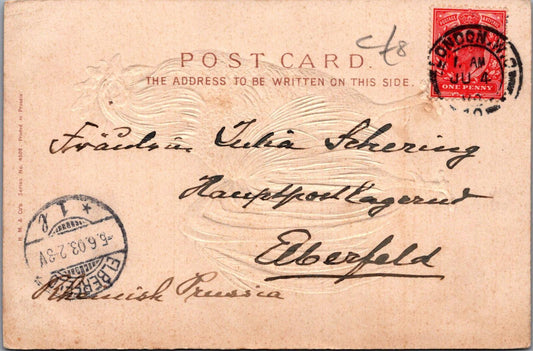 POST CARD.
THE ADDRESS TO BE WRITTEN ON THIS SIDE.
POSTAGE REVENUE
ONE PENNY
LONDON.W.C
1. AM
JU 4
03
Fräulein Julia Schering
Hauptpostlagernd
Elberfeld
Rhenish Prussia
* 1 l
5.6.03.2-3V
ELBERF
Series No.
Printed in Prussia